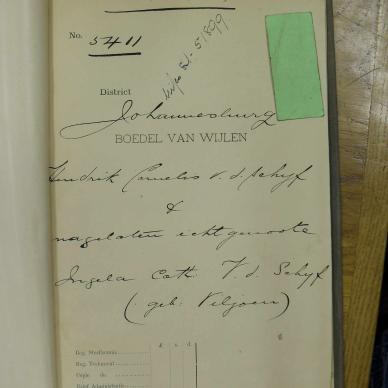 No. 5411
5-1899
District
Johannesburg
BOEDEL VAN WIJLEN
Hendrik Cornelis v. d. Schyf
&
nagelaten echtgenoote
Ingela Cath. V. d. Schyf
(geb: Viljoen)
£ s d
Reg. Meesterknis
Reg. Testament
Copie do.
Brief Administratie